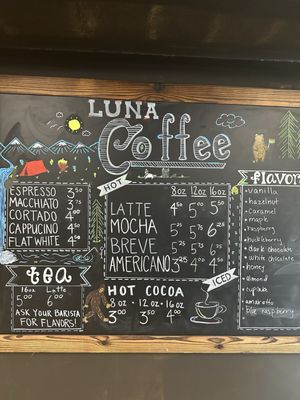 LUNA
Coffee
ESPRESSO 3.50
MACCHIATO 3.75
CORTADO 4.00
CAPPUCINO 4.50
FLAT WHITE 4.50
HOT
8oz 12oz 16oz
LATTE 4.50 5.00 5.50
MOCHA
BREVE
AMERICANO
ICED
tea
16oz Latte
5.00 6.00
ASK YOUR BARISTA
FOR FLAVORS!
HOT COCOA
8oz · 12oz · 16oz
3.00 3.50 4.00
flavor
vanilla
hazelnut
caramel
maple
raspberry
huckleberry
dark chocolate
white chocolate
honey
almond
cupcake
amaretto
blue raspberry